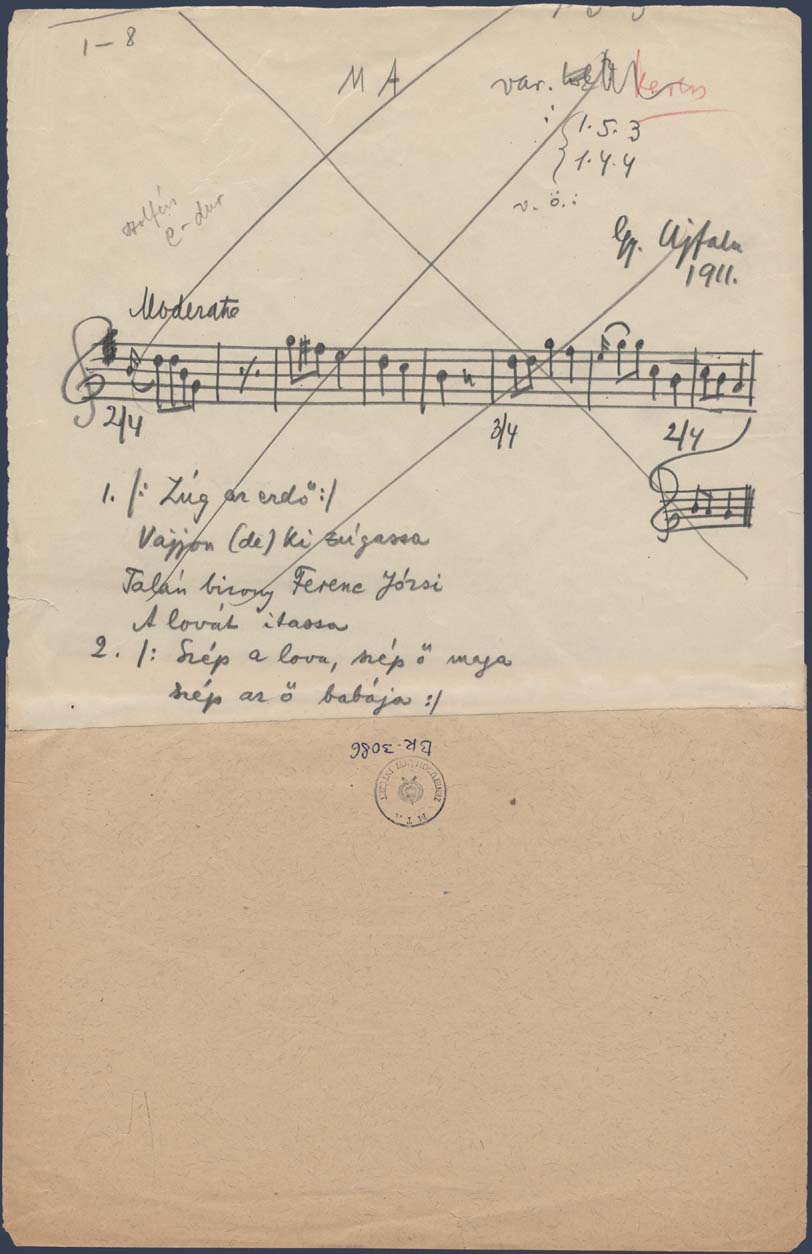 1–8
M A
var. keres
: 1.5.3
1.4.4
v. ö.:
C-dur
Gy. Ujfalu
1911.
Moderato
2/4 3/4 2/4
1. /: Zúg az erdő :/
Vajjon (de) Ki zúgassa
Talán bizony Ferenc Józsi
A lovát itassa
2. /: Szép a lova, szép ő maja
szép az ő babája :/
BR-3086
M T A